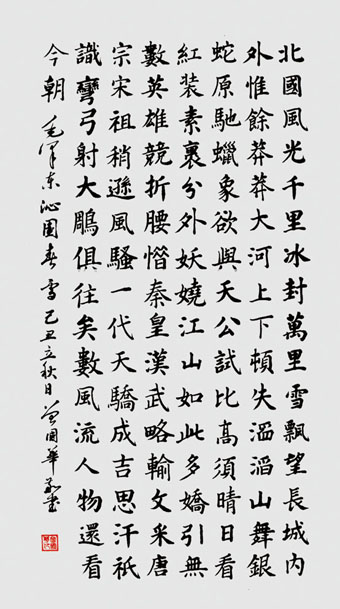 北國風光千里冰封萬里雪飄望長城內
外惟餘莽莽大河上下頓失滔滔山舞銀
蛇原馳蠟象欲與天公試比高須晴日看
紅裝素裹分外妖嬈江山如此多嬌引無
數英雄競折腰惜秦皇漢武略輸文采唐
宗宋祖稍遜風騷一代天驕成吉思汗祇
識彎弓射大鵰俱往矣數風流人物還看
今朝 毛澤東沁園春雪己丑立秋日曾國華書